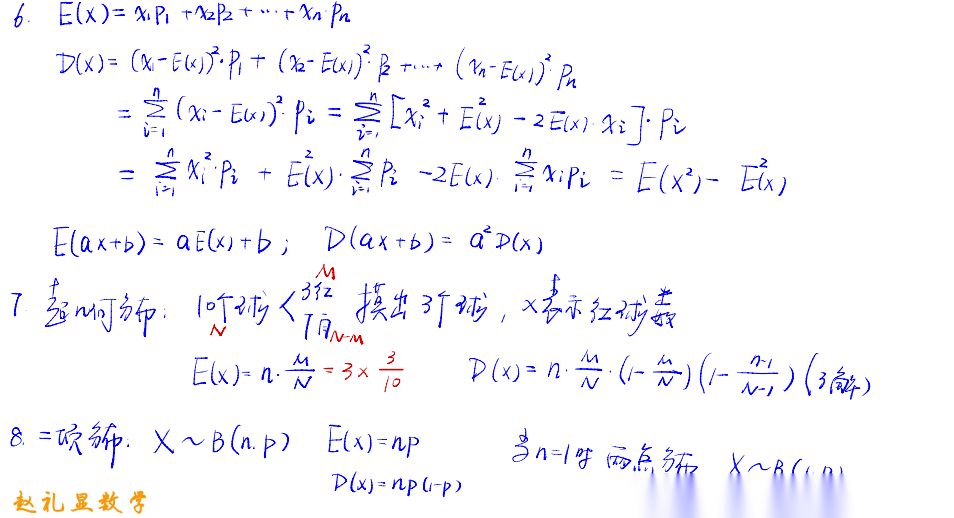 6. E(x) = x₁p₁ + x₂p₂ + ⋯ + xₙpₙ
D(x) = (x₁-E(x))²·p₁ + (x₂-E(x))²·p₂ + ⋯ + (xₙ-E(x))²·pₙ
= ∑ⁿᵢ₌₁ (xᵢ-E(x))²·pᵢ = ∑ⁿᵢ₌₁ [xᵢ² + E²(x) - 2E(x)·xᵢ]·pᵢ
= ∑ⁿᵢ₌₁ xᵢ²·pᵢ + E²(x)·∑ⁿᵢ₌₁ pᵢ - 2E(x)·∑ⁿᵢ₌₁ xᵢpᵢ = E(x²) - E²(x)
E(ax+b) = aE(x)+b; D(ax+b) = a²D(x)
7 超几何分布: 10个球 N < 3红 M 7白 N-M 摸出3个球, x表示红球数
E(x) = n·M/N = 3×3/10 D(x) = n·M/N·(1-M/N)(1-(n-1)/(N-1)) (了解)
8. 二项分布: X~B(n.p) E(x)=np 当n=1时 两点分布 X~B(1,p)
D(x)=np(1-p)
赵礼显数学